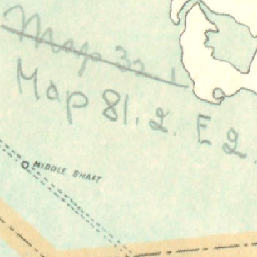 Map 32.1
Map 81.2. E2.
MIDDLE SHAFT